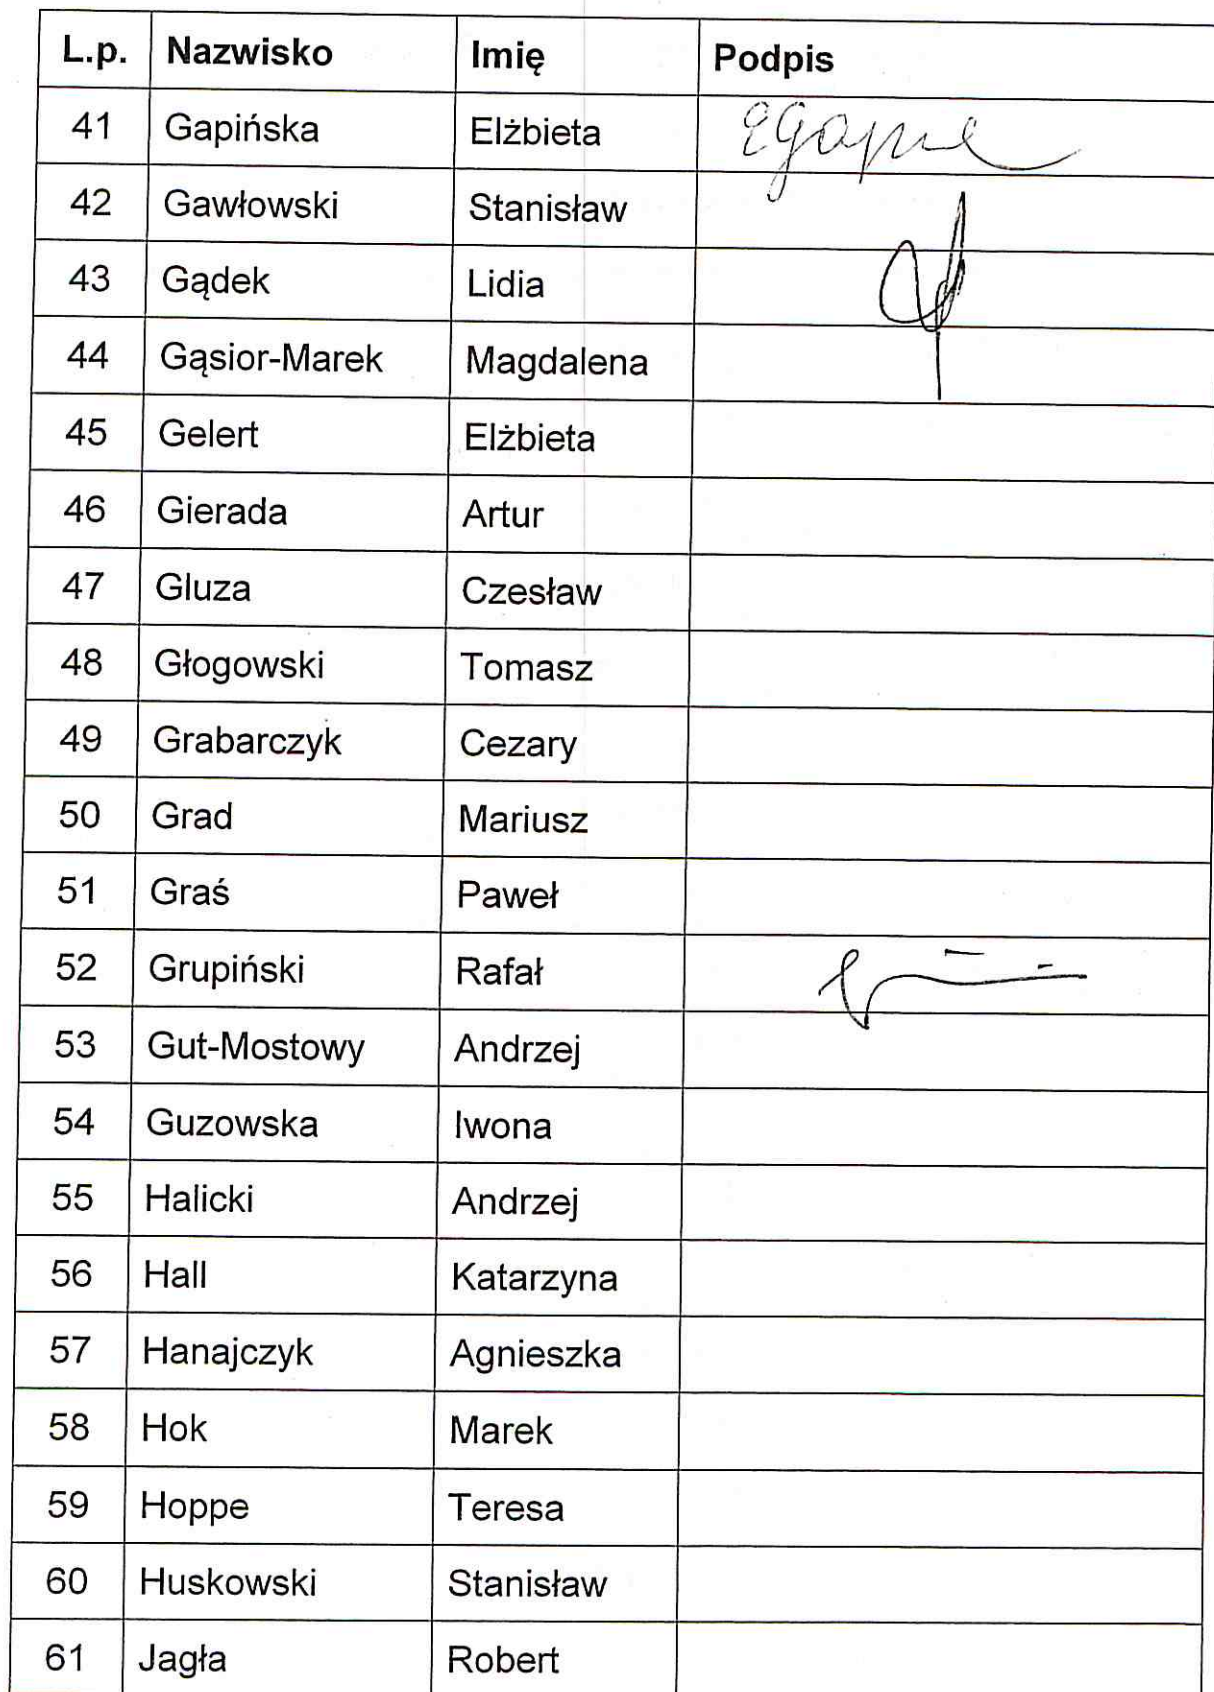 L.p. Nazwisko Imię Podpis
41 Gapińska Elżbieta
42 Gawłowski Stanisław
43 Gądek Lidia
44 Gąsior-Marek Magdalena
45 Gelert Elżbieta
46 Gierada Artur
47 Gluza Czesław
48 Głogowski Tomasz
49 Grabarczyk Cezary
50 Grad Mariusz
51 Graś Paweł
52 Grupiński Rafał
53 Gut-Mostowy Andrzej
54 Guzowska Iwona
55 Halicki Andrzej
56 Hall Katarzyna
57 Hanajczyk Agnieszka
58 Hok Marek
59 Hoppe Teresa
60 Huskowski Stanisław
61 Jagła Robert